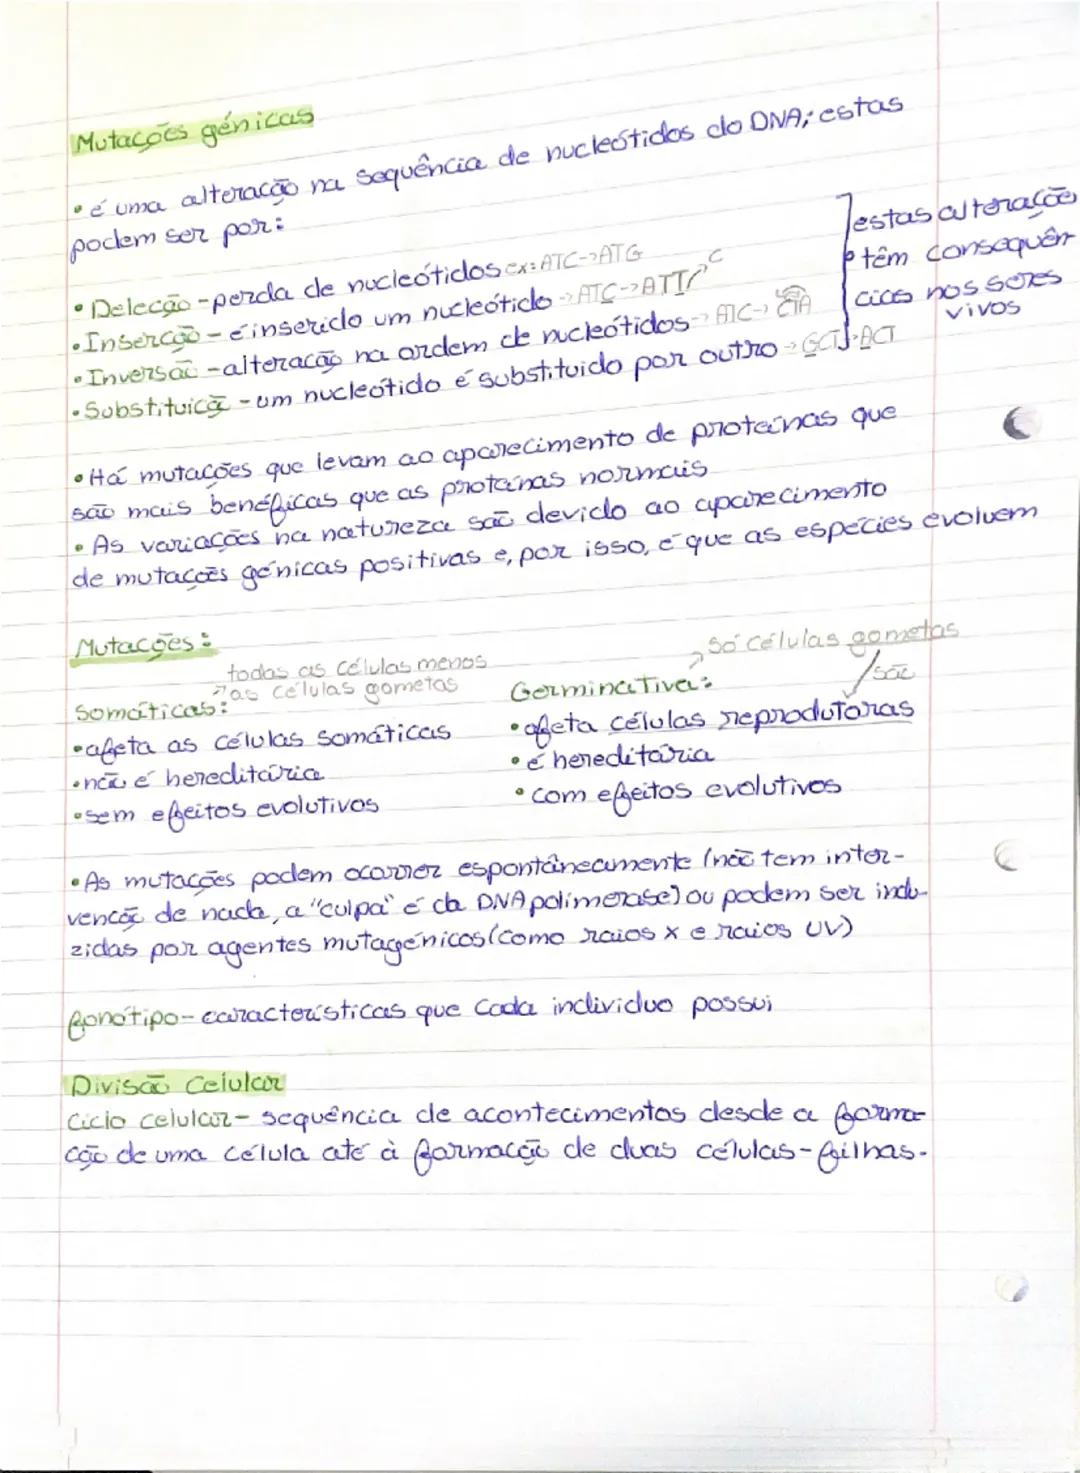 Mutações génicas
• é uma alteração na sequência de nucleótidos do DNA; estas
podem ser por:
• Deleção - perda de nucleótidos ex: ATC->ATG
• Inserção - é inserido um nucleótido -> ATC->ATT C
• Inversão - alteração na ordem de nucleótidos -> ATC->CTA
• Substituição - um nucleótido é substituido por outro -> GCT->ACT
estas alterações
têm consequên-
cias nos seres
vivos
• Há mutações que levam ao aparecimento de proteínas que
são mais benéficas que as proteínas normais
• As variações na natureza são devido ao aparecimento
de mutações génicas positivas e, por isso, é que as espécies evoluem
Mutações:
todas as células menos
as células gametas
Somáticas:
• afeta as células somáticas
• não é hereditária
• sem efeitos evolutivos
só células gametas
são
Germinativa:
• afeta células reprodutoras
• é hereditária
• com efeitos evolutivos
• As mutações podem ocorrer espontâneamente (não tem inter-
venção de nada, a "culpa" é da DNA polimerase) ou podem ser indu-
zidas por agentes mutagénicos (como raios x e raios UV)
fenótipo - características que cada individuo possui
Divisão Celular
Ciclo celular - sequência de acontecimentos desde a forma-
ção de uma célula até à formação de duas células-filhas.